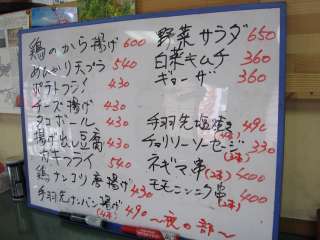 鶏のから揚げ 600
めんたい天プラ 540
ポテトフライ 430
チーズ揚げ 430
タコボール 430
揚げ出し豆腐 430
カキフライ 540
鶏ナンコツ唐揚げ 430
手羽先ナンバン揚げ 490
野菜サラダ 650
白菜キムチ 360
ギョーザ 360
手羽先塩焼き 490
チョリソーソーセージ 330
ネギマ串 400
モモニンニク串 400
〜夜の部〜